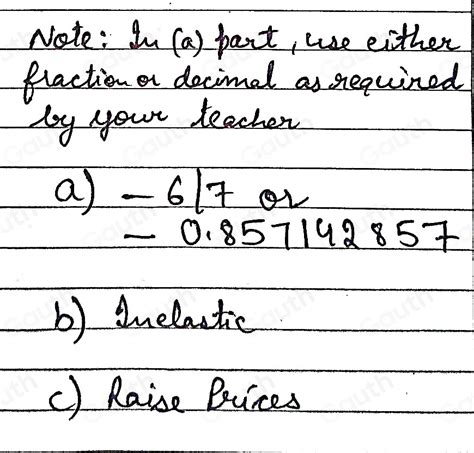 Note: In (a) part, use either
fraction or decimal as required
by your teacher
a) - 6/7 or
- 0.857142857
b) Inelastic
c) Raise Prices